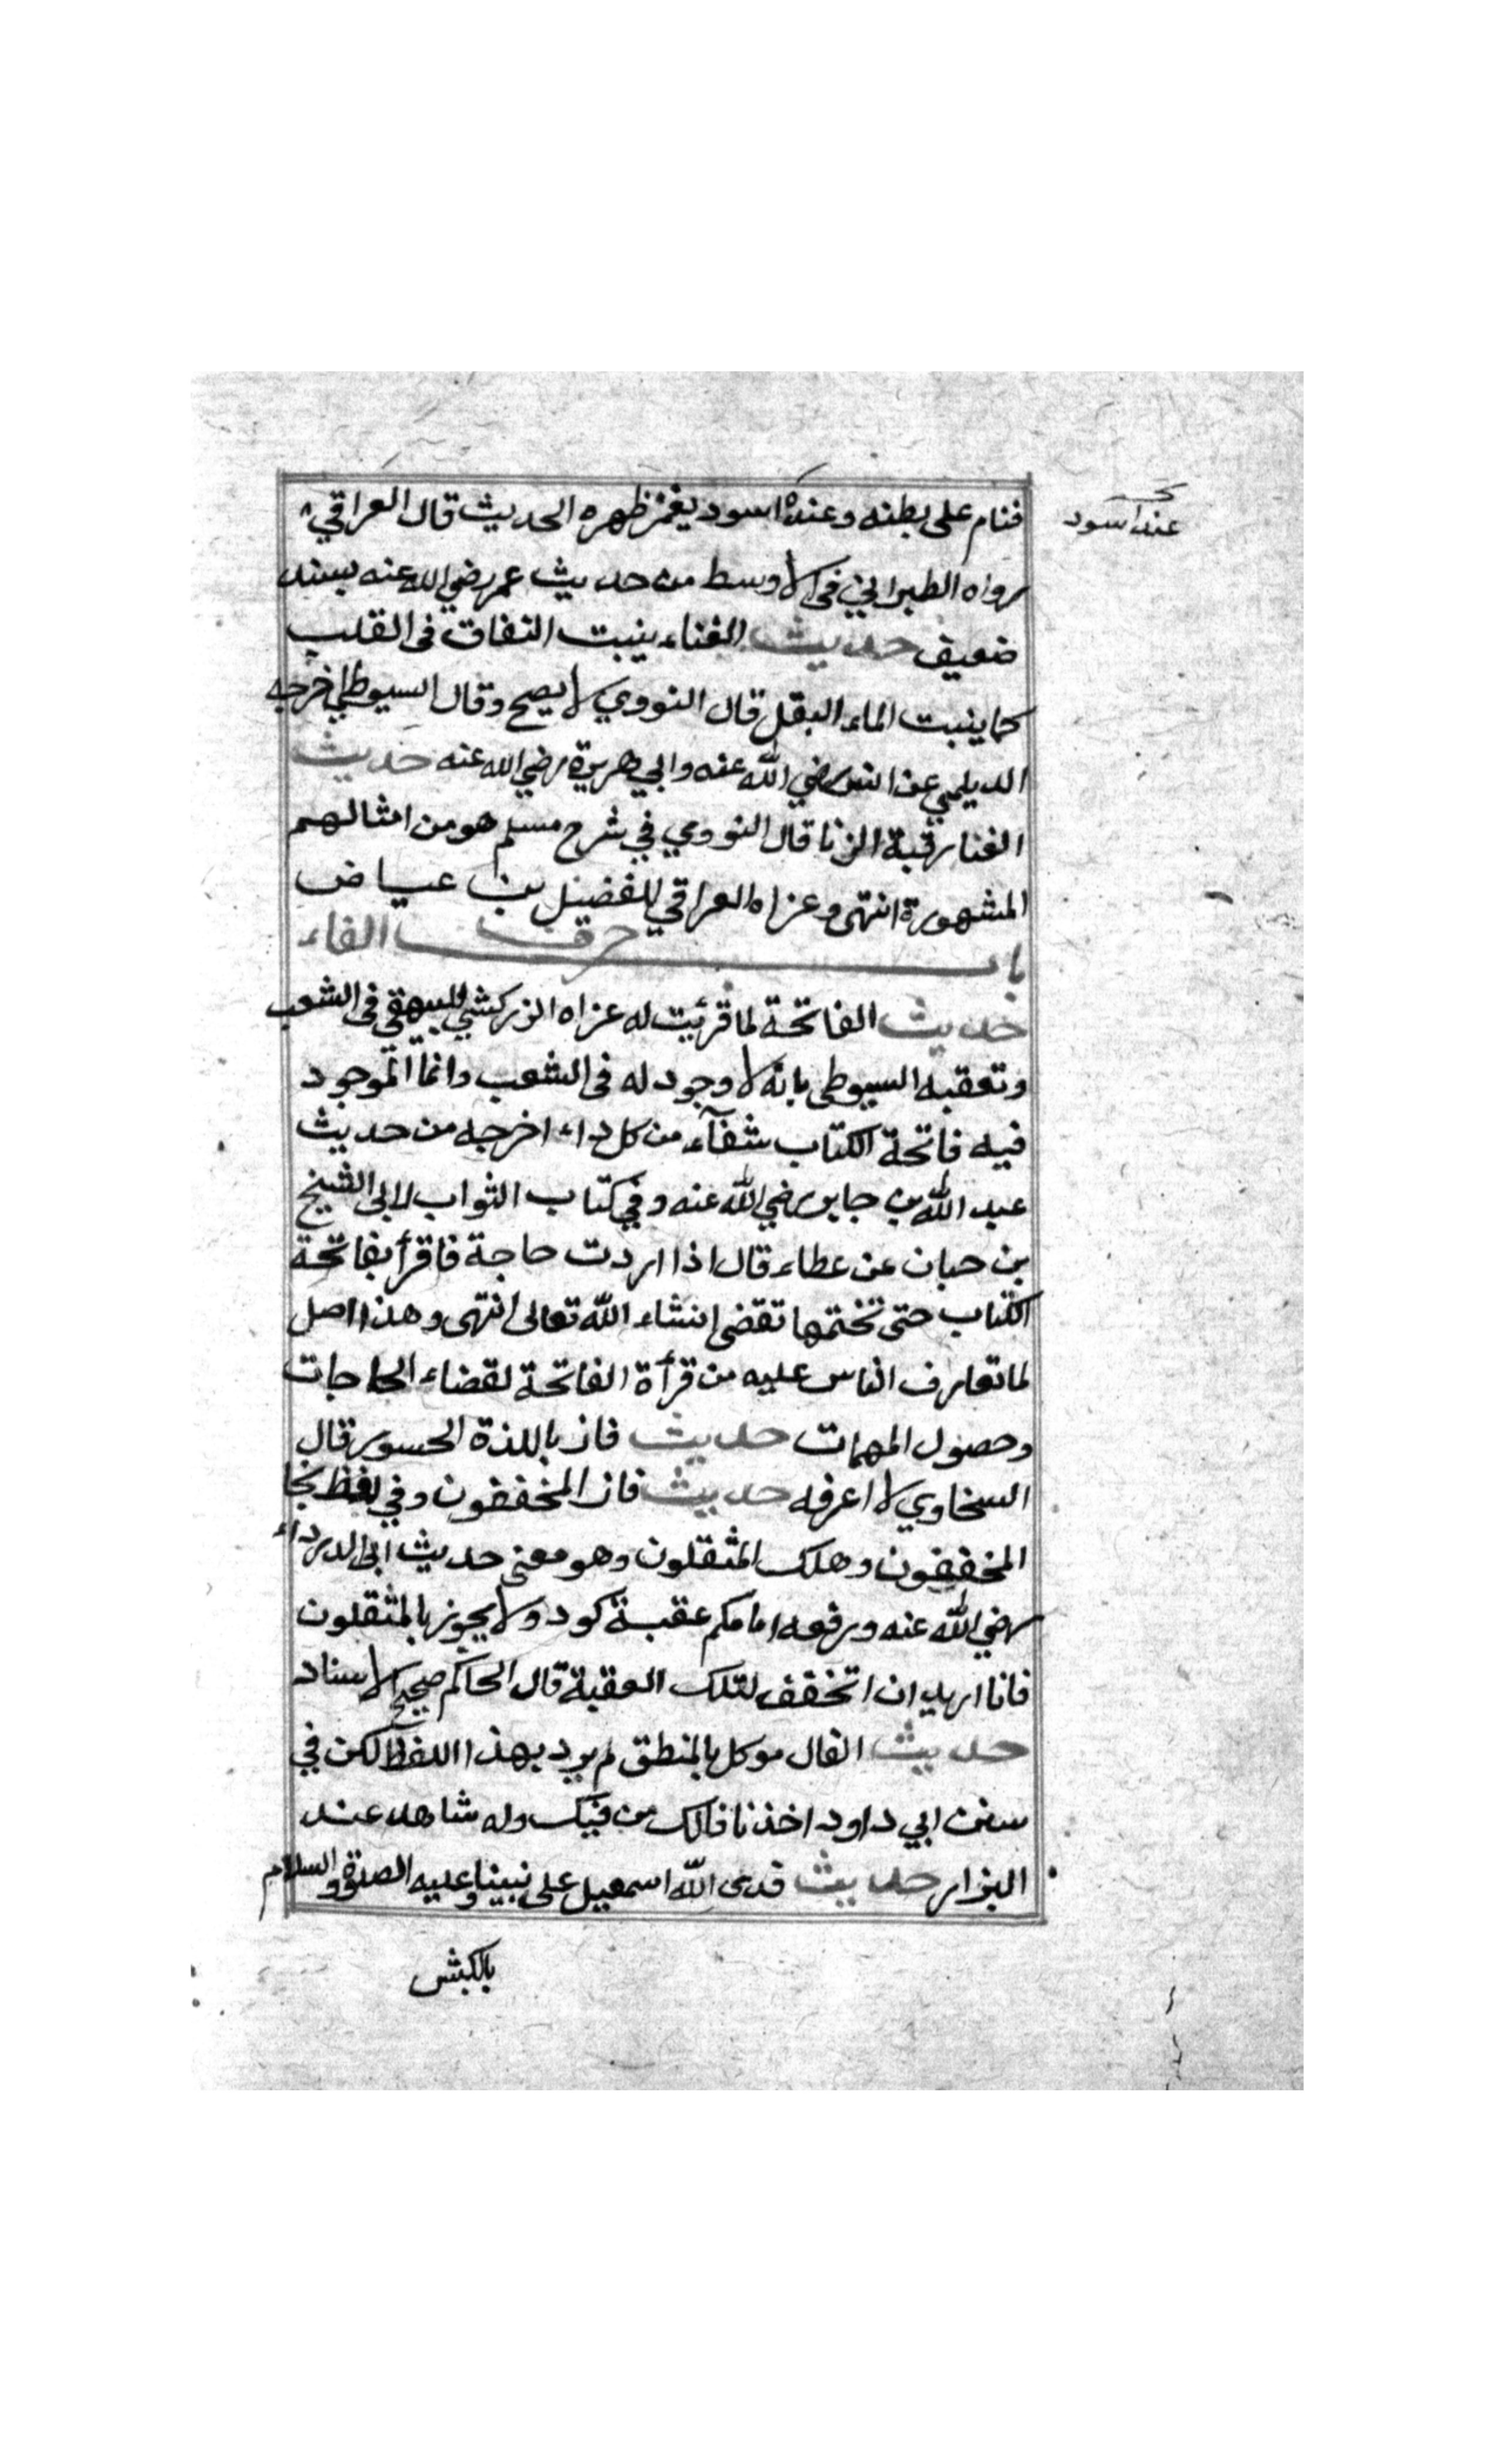 فنام على بطنه وعنده اسود يغمز ظهره الحديث قال العراقي
عند اسود
رواه الطبراني في الاوسط من حديث عمر رضي الله عنه بسند
ضعيف حديث الغناء ينبت النفاق في القلب
كما ينبت الماء البقل قال النووي لا يصح وقال السيوطي اخرجه
الديلمي عن انس رضي الله عنه وابي هريرة رضي الله عنه حديث
الغنا رقية الزنا قال النووي في شرح مسلم هو من امثالهم
المشهورة انتهى وعزاه العراقي للفضيل بن عياض
باب حرف الفاء
حديث الفاتحة لما قرئت له عزاه الزركشي للبيهقي في الشعب
وتعقبه السيوطي بانه لا وجود له في الشعب وانما الموجود
فيه فاتحة الكتاب شفآء من كل داء اخرجه من حديث
عبد الله بن جابر رضي الله عنه وفي كتاب الثواب لابي الشيخ
بن حبان عن عطاء قال اذا اردت حاجة فاقرأ بفاتحة
الكتاب حتى تختمها تقضى انشاء الله تعالى انتهى وهذا اصل
لما تعارف الناس عليه من قرأة الفاتحة لقضاء الحاجات
وحصول المهمات حديث فاز باللذة الجسور قال
السخاوي لا اعرفه حديث فاز المخففون وفي لفظ نجا
المخففون وهلك المثقلون وهو معنى حديث ابي الدرداء
رضي الله عنه ورفعه امامكم عقبة كود ولا يجوز بالمثقلون
فانا اريد ان اتخفف لتلك العقبة قال الحاكم صحيح الاسناد
حديث الفال موكل بالمنطق لم يرد بهذا اللفظ لكن في
سنن ابي داود اخذنا فالك من فيك وله شاهد عند
البزار حديث فدى الله اسمعيل على نبينا وعليه الصلوة والسلام
بالكبش